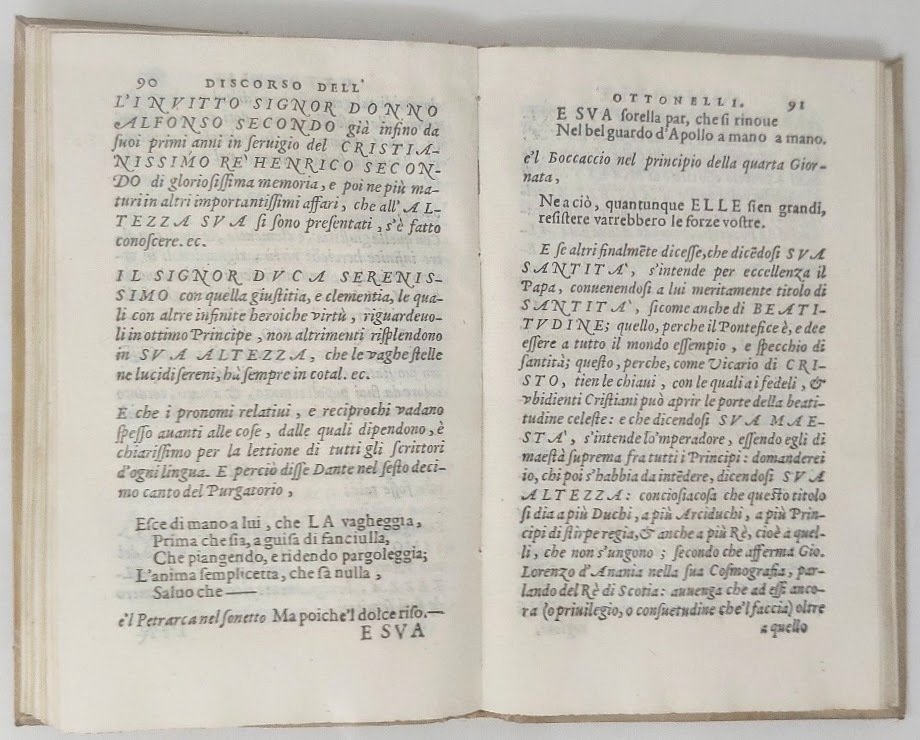 90 DISCORSO DELL'
L'INVITTO SIGNOR DONNO
ALFONSO SECONDO già infino da
suoi primi anni in seruigio del CRISTIA-
NISSIMO RE' HENRICO SECON-
DO di gloriosissima memoria, e poi ne più ma-
turi in altri importantissimi affari, che all' AL-
TEZZA SVA si sono presentati, s'è fatto
conoscere. ec.
IL SIGNOR DVCA SERENIS-
SIMO con quella giustitia, e clementia, le qua-
li con altre infinite heroiche virtù, riguardeuo-
li in ottimo Principe, non altrimenti risplendono
in SVA ALTEZZA, che le vaghe stelle
ne lucidi sereni, ha sempre in cotal. ec.
E che i pronomi relatiui, e reciprochi vadano
spesso auanti alle cose, dalle quali dipendono, è
chiarissimo per la lettione di tutti gli scrittori
d'ogni lingua. E perciò disse Dante nel sesto deci-
mo canto del Purgatorio,
Esce di mano a lui, che LA vagheggia,
Prima che sia, a guisa di fanciulla,
Che piangendo, e ridendo pargoleggia;
L'anima semplicetta, che sà nulla,
Saluo che ——
e'l Petrarca nel sonetto Ma poiche'l dolce riso.—
E SVA
OTTONELLI. 91
E SVA sorella par, che si rinoue
Nel bel guardo d'Apollo a mano a mano.
e'l Boccaccio nel principio della quarta Gior-
nata,
Ne a ciò, quantunque ELLE sien grandi,
resistere varrebbero le forze vostre.
E se altri finalmēte dicesse, che dicēdosi SVA
SANTITA', s'intende per eccellenza il
Papa, conuenendosi a lui meritamente titolo di
SANTITA', sicome anche di BEATI-
TVDINE; quello, perche il Pontefice è, e dee
essere a tutto il mondo essempio, e specchio di
santità; questo, perche, come Vicario di CRI-
STO, tien le chiaui, con le quali ai fedeli, &
vbidienti Cristiani può aprir le porte della beati-
tudine celeste: e che dicendosi SVA MAE-
STA', s'intende lo'mperadore, essendo egli di
maestà suprema fra tutti i Principi: domanderei
io, chi poi s'habbia da intēdere, dicendosi SVA
ALTEZZA: conciosiacosa che questo titolo
si dia a più Duchi, a più Arciduchi, a più Prin-
cipi di stirpe regia, & anche a più Rè, cioè a quel-
li, che non s'ungono; secondo che afferma Gio.
Lorenzo d'Anania nella sua Cosmografia, par-
lando del Rè di Scotia: auuenga che ad esse anco-
ra (o priuilegio, o consuetudine che'l faccia) oltre
a quello